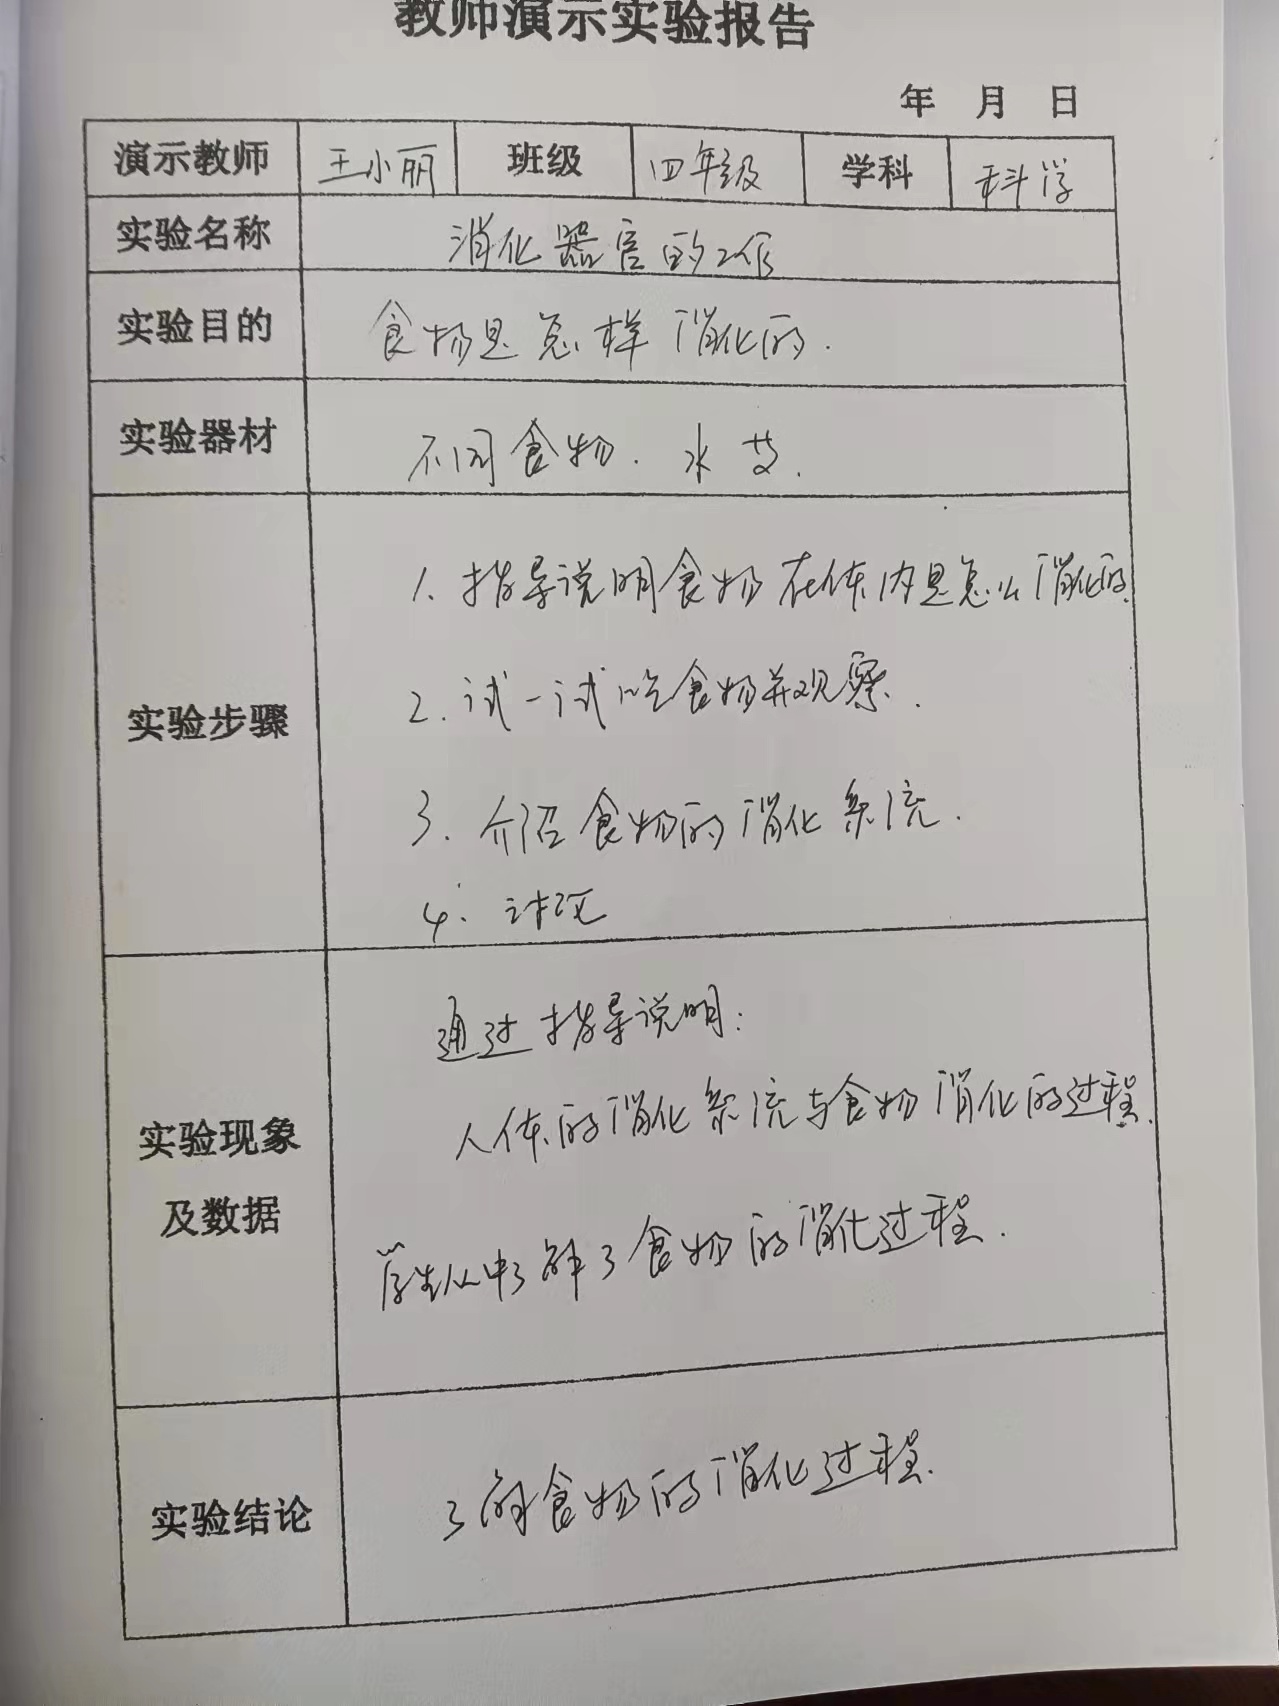 教师演示实验报告
年 月 日
演示教师 王小丽 班级 四年级 学科 科学
实验名称 消化器官的工作
实验目的 食物是怎样消化的.
实验器材 不同食物. 水
实验步骤
1. 指导说明食物在体内是怎么消化的.
2. 试一试吃食物并观察.
3. 介绍食物的消化系统.
4. 讨论
实验现象
及数据
通过指导说明:
人体的消化系统与食物消化的过程.
学生从中了解了食物的消化过程.
实验结论 了解食物的消化过程.